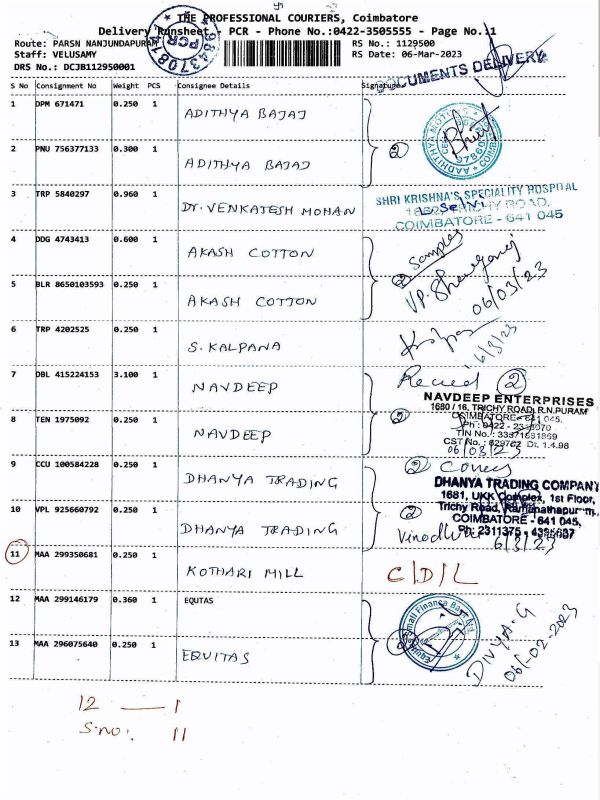 THE PROFESSIONAL COURIERS, Coimbatore
Delivery Runsheet - PCR - Phone No.:0422-3505555 - Page No.:1
Route: PARSN NANJUNDAPURAM
RS No.: 1129500
Staff: VELUSAMY
RS Date: 06-Mar-2023
DRS No.: DCJB112950001
PCR
DOCUMENTS DELIVERY
S No Consignment No Weight PCS Consignee Details Signature
1 DPM 671471 0.250 1 ADITHYA BAJAJ
2 PNU 756377133 0.300 1 ADITHYA BAJAJ
2
3 TRP 5840297 0.960 1 Dr. VENKATESH MOHAN
SHRI KRISHNA'S SPECIALITY HOSPITAL
TRICHY ROAD,
COIMBATORE - 641 045
4 DDG 4743413 0.600 1 AKASH COTTON
2 Samples
5 BLR 8650103593 0.250 1 AKASH COTTON
06/03/23
6 TRP 4202525 0.250 1 S. KALPANA
6/3/23
7 DBL 415224153 3.100 1 NAVDEEP
2
NAVDEEP ENTERPRISES
1680 / 16, TRICHY ROAD, R.N.PURAM
COIMBATORE - 641 045.
8 TEN 1975092 0.250 1 NAVDEEP
2
06/03/23
9 CCU 100584228 0.250 1 DHANYA TRADING
2
DHANYA TRADING COMPANY
1681, UKK Complex, 1st Floor,
Trichy Road, Ramanathapuram,
COIMBATORE - 641 045,
10 VPL 925660792 0.250 1 DHANYA TRADING
2
6/3/23
11 MAA 299350681 0.250 1 KOTHARI MILL
C/D/L
12 MAA 299146179 0.360 1 EQUTAS
13 MAA 296075640 0.250 1 EQUITAS
Small Finance Bank
DIVYA.G
06-02-2023
12 — 1
S.no: 11